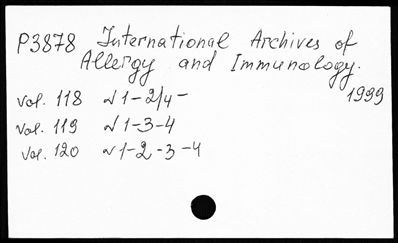 P3878 International Archives of
Allergy and Immunology.
1999
vol. 118 N 1-2/4-
vol. 119 N 1-3-4
vol. 120 N 1-2-3-4